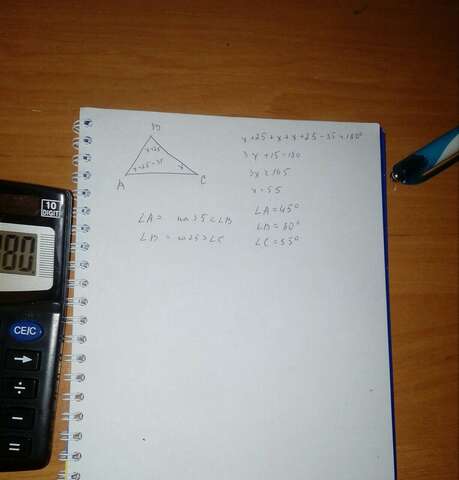 B
x+25
x+25-35
x
A
C
∠A = на 35 < ∠B
∠B = на 25 > ∠C
x+25+x+x+25-35=180°
3x+15=180
3x=165
x=55
∠A=45°
∠B=80°
∠C=55°
10
DIGIT
80
CE/C
→
÷
−
=